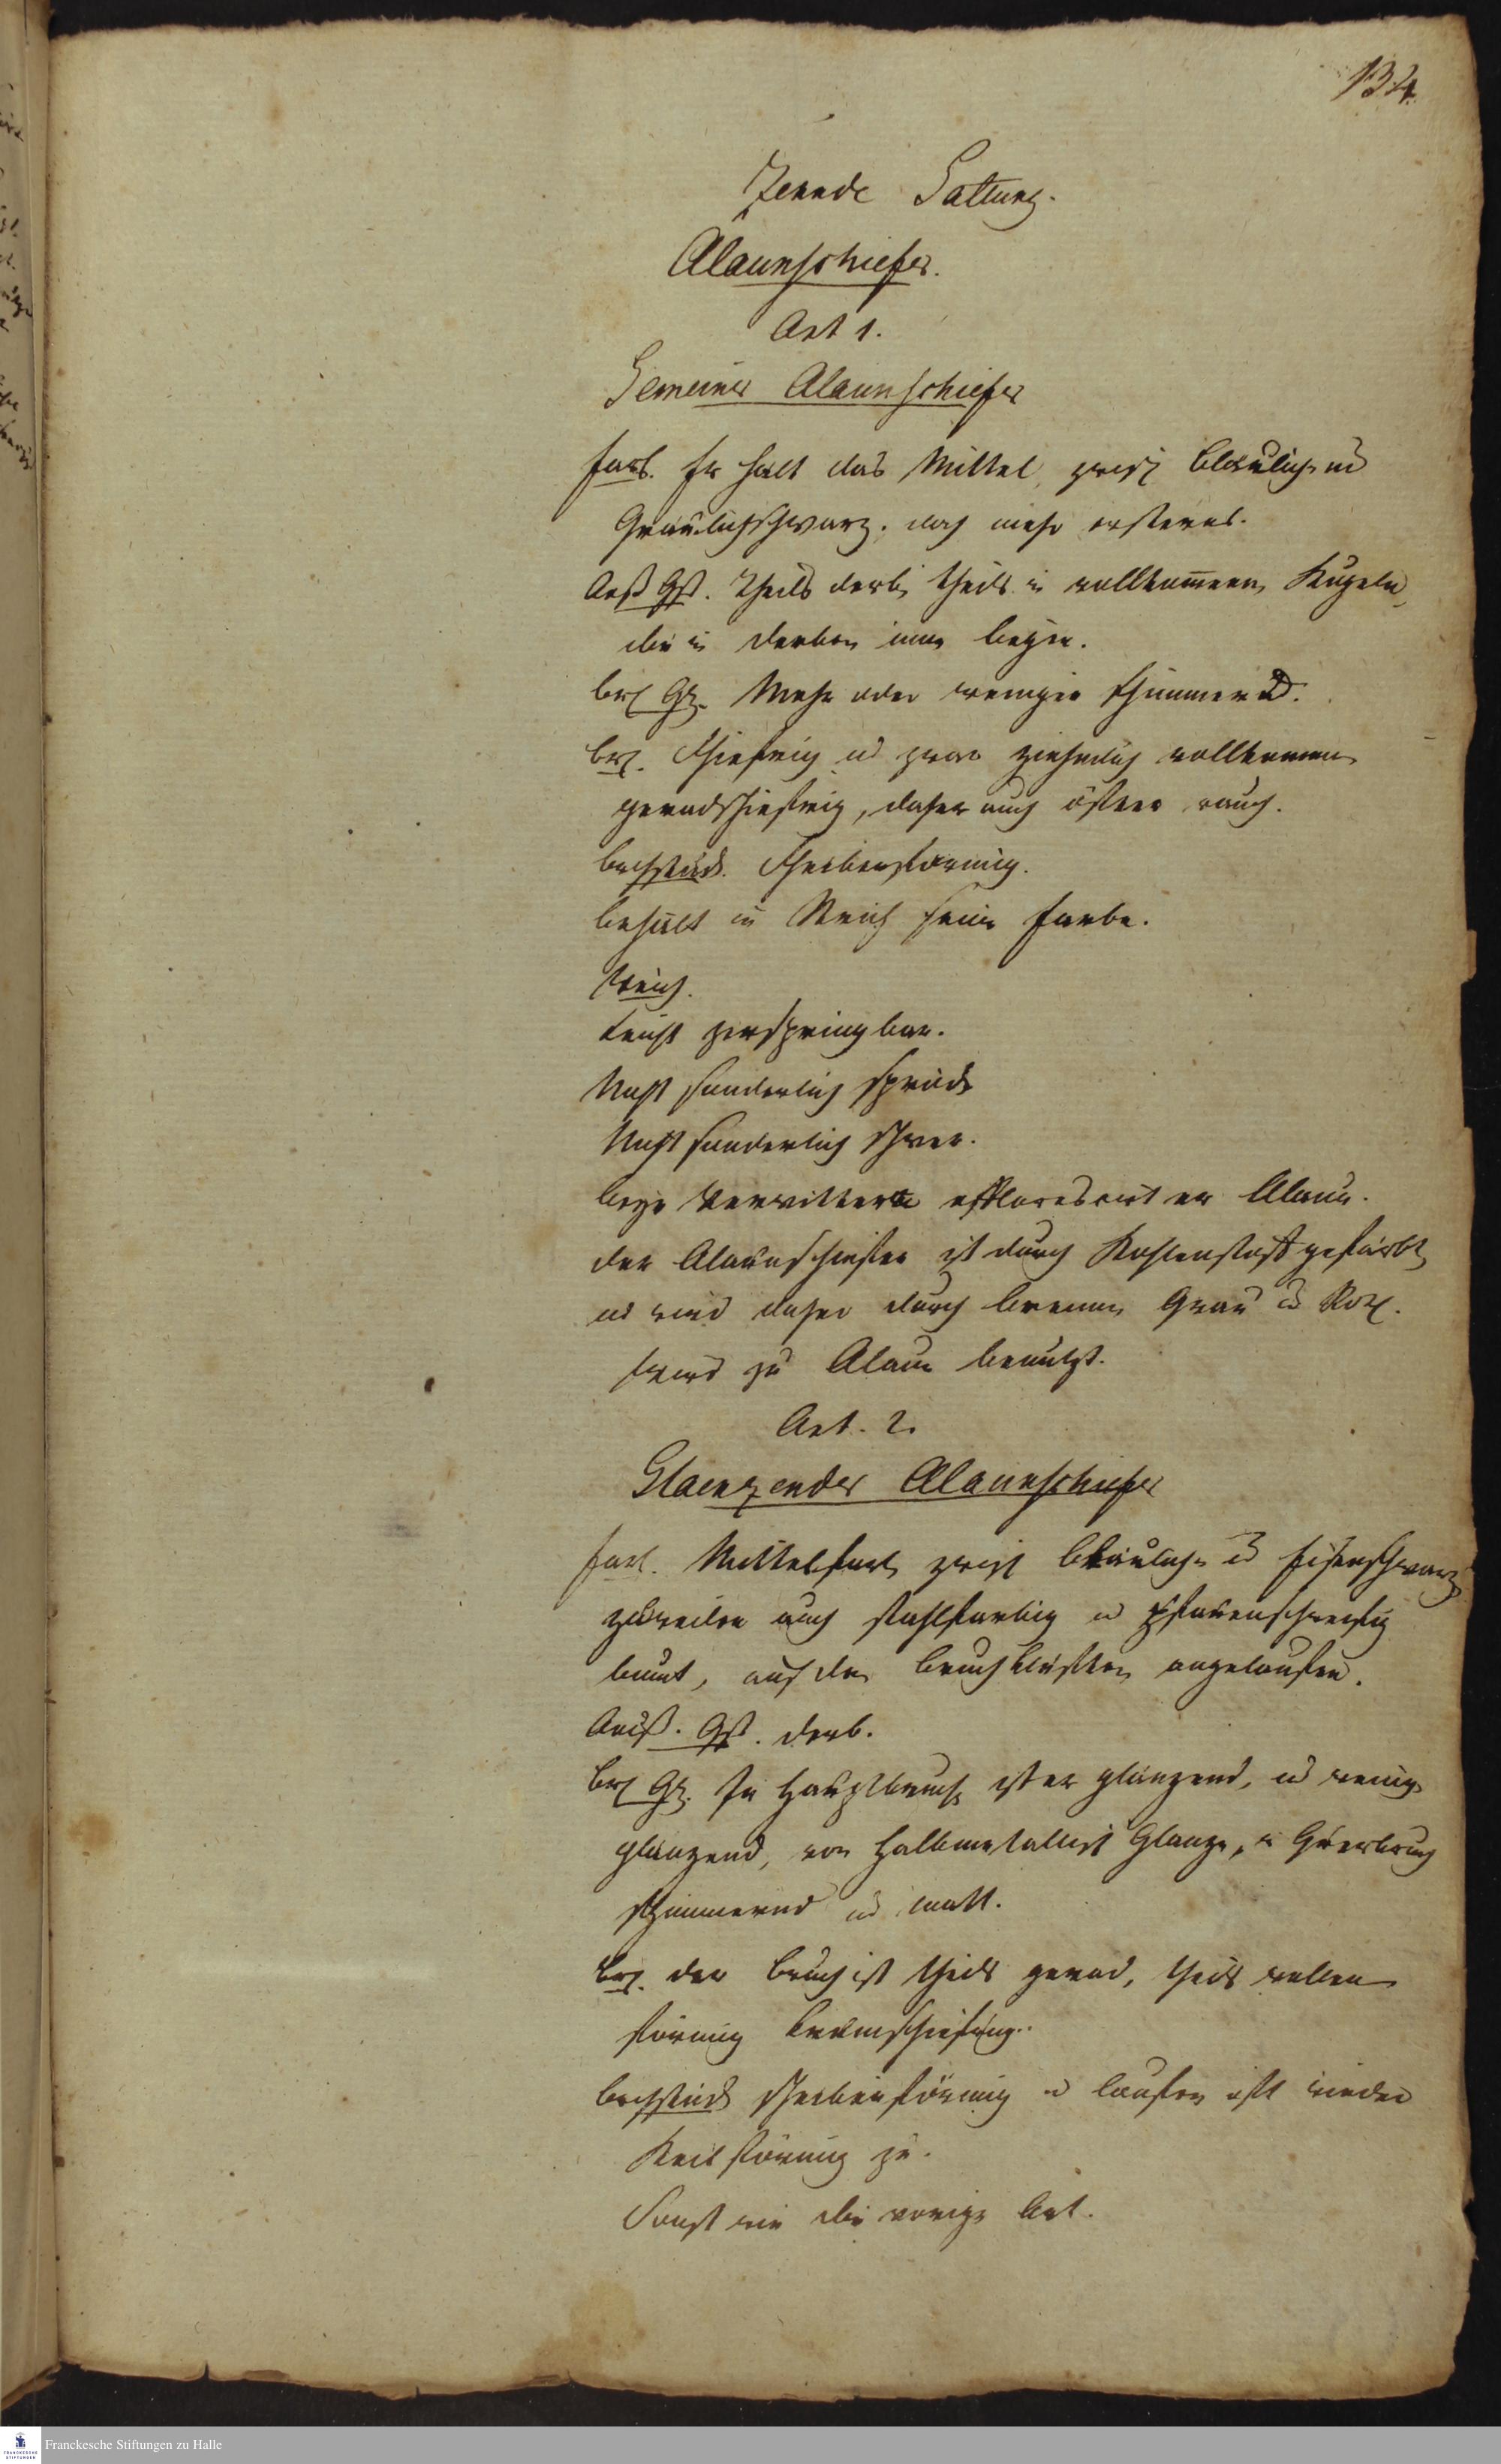 134.
Zehnde Gattung.
Alaunschiefer.
Art 1.
Gemeiner Alaunschiefer
Farb. Er hält das Mittel zwisch bläulich und
Graulichschwarz. doch mehr ersteres.
Aeß Gst. Theils derb, theils in vollkommern Kugeln,
die in derben inne liegen.
br Gz. Mehr oder weniger schimmernd.
br. Schiefrig u zwar ziehmlich vollkommen
geradschiefrig, daher auch öfter rauch.
bruchstück. Scheibenförmig.
behält im Strich seine Farbe.
Weich.
Leicht zerspringbar.
Nicht sonderlich spröde
Nicht sonderlich schwer.
beym Verwittern efflorescirt er Alaun.
der Alaunschiefer ist durch Kohlenstoff gefärbt,
u wird daher durch brennen Grau u Roth.
wird zu Alaun benutzt.
Art. 2.
Glaenzender Alaunschiefer
Farb. Mittelfarb zwisch bläulich u Eisenschwarz
zuweilen auch stahlfarbig u pfauenschweifig
bunt, auf den bruchklüften angelaufen.
Aeuß. Gst. derb.
br Gz. Im Hauptbruch ist er glänzend, u wenig
glänzend, von halbmetallisch Glanze, im Querbruch
schimmernd u matt.
br. der bruch ist theils gerad, theils wellen
förmig krummschiefrig.
bruchstück scheibenförmig u laufen oft wieder
Keilförmig zu.
Sonst wie die vorige Art.
Franckesche Stiftungen zu Halle